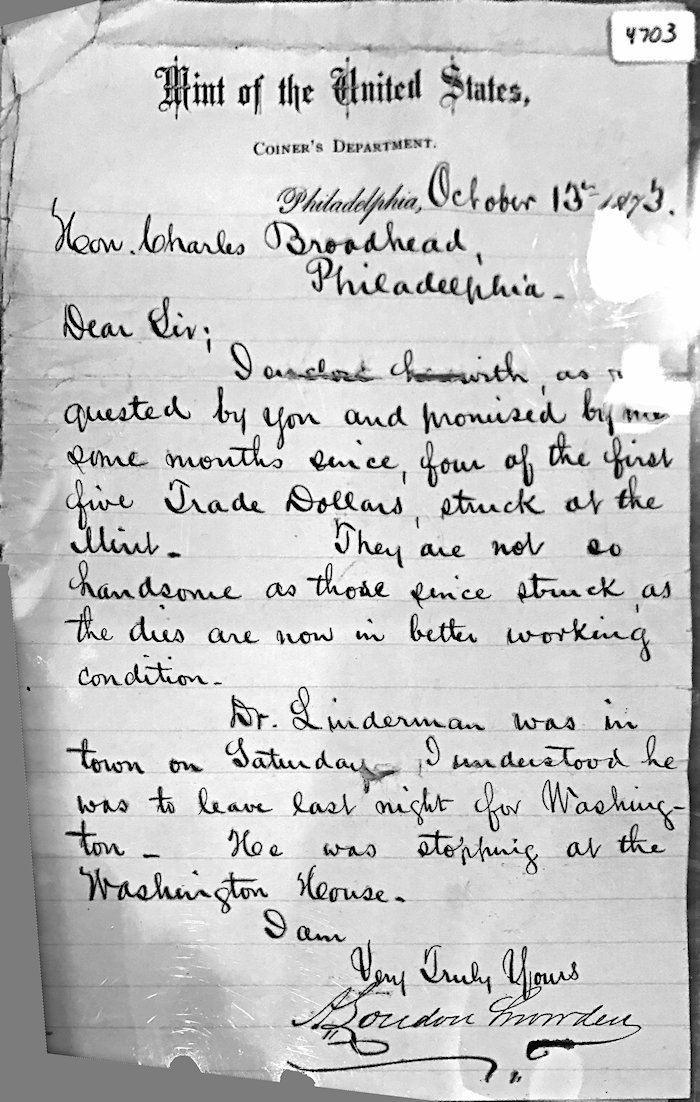 4703
Mint of the United States,
COINER'S DEPARTMENT.
Philadelphia, October 13th 1873.
Hon. Charles Broadhead,
Philadelphia -
Dear Sir;
I enclose herewith, as
quested by you and promised by me
some months since, four of the first
five Trade Dollars, struck at the
Mint - They are not so
handsome as those since struck, as
the dies are now in better working
condition -
Dr. Linderman was in
town on Saturday - I understood he
was to leave last night for Washing-
ton - He was stopping at the
Washington House.
I am
Very Truly Yours
A Loudon Snowden